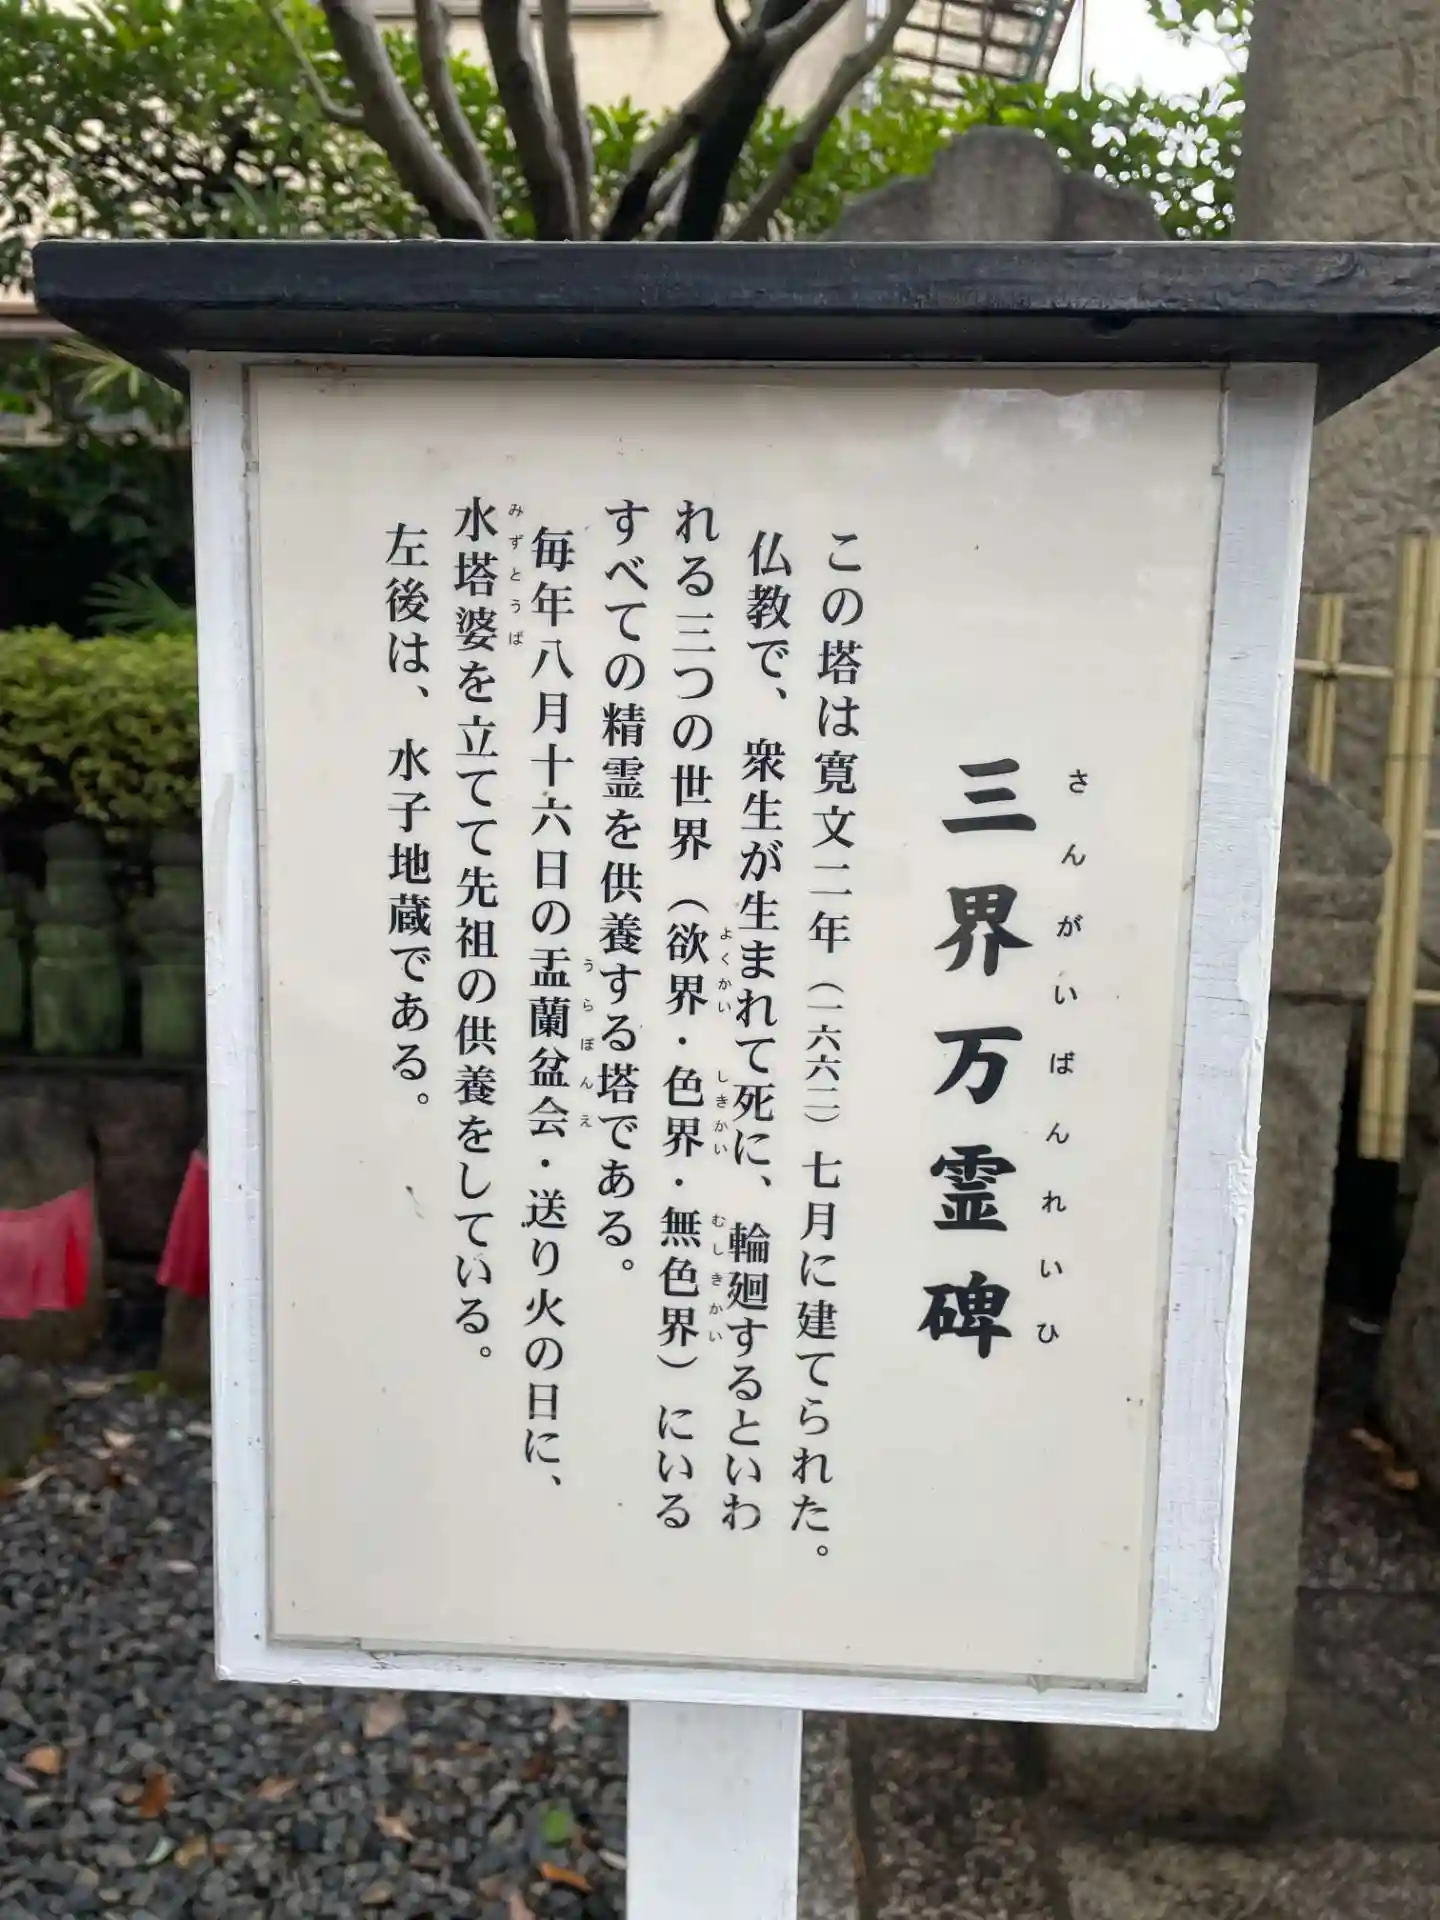 三界万霊碑
さんがいばんれいひ
この塔は寛文二年（一六六二）七月に建てられた。
仏教で、衆生が生まれて死に、輪廻するといわ
れる三つの世界（欲界・色界・無色界）にいる
よくかい しきかい むしきかい
すべての精霊を供養する塔である。
毎年八月十六日の盂蘭盆会・送り火の日に、
うらぼんえ
水塔婆を立てて先祖の供養をしている。
みずとうば
左後は、水子地蔵である。